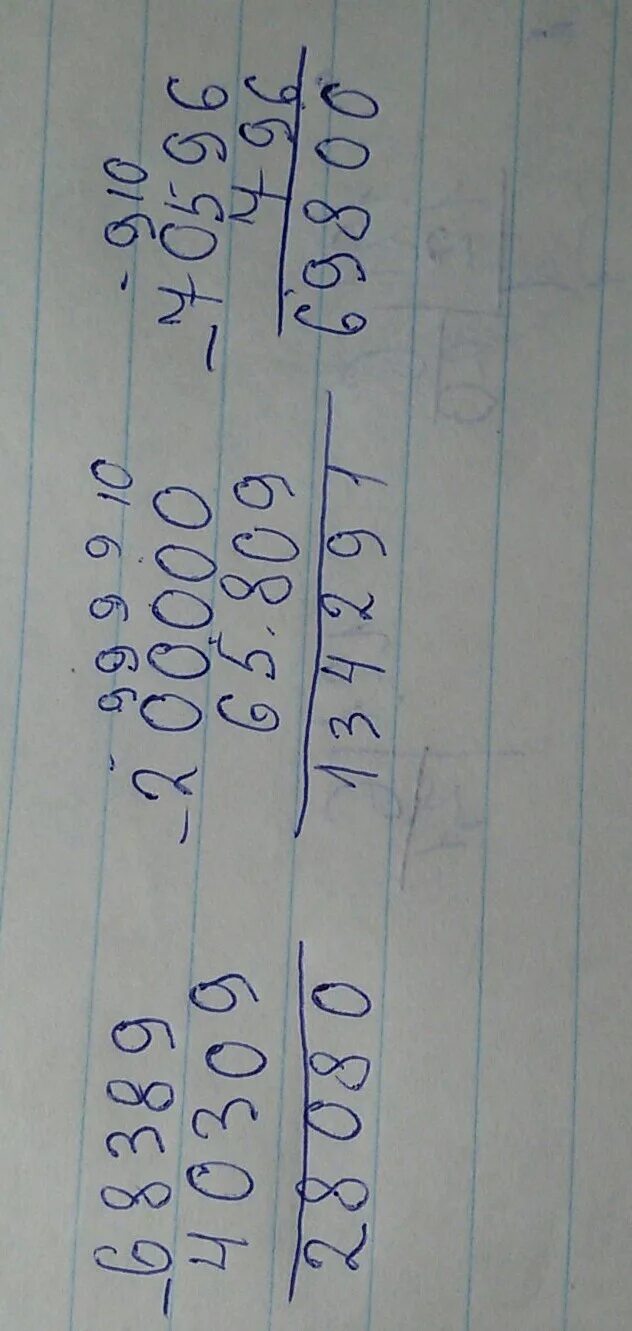 -68389
40309
28080
9 9 9 9 10
-200000
65.809
134291
9 10
-70596
796
69800